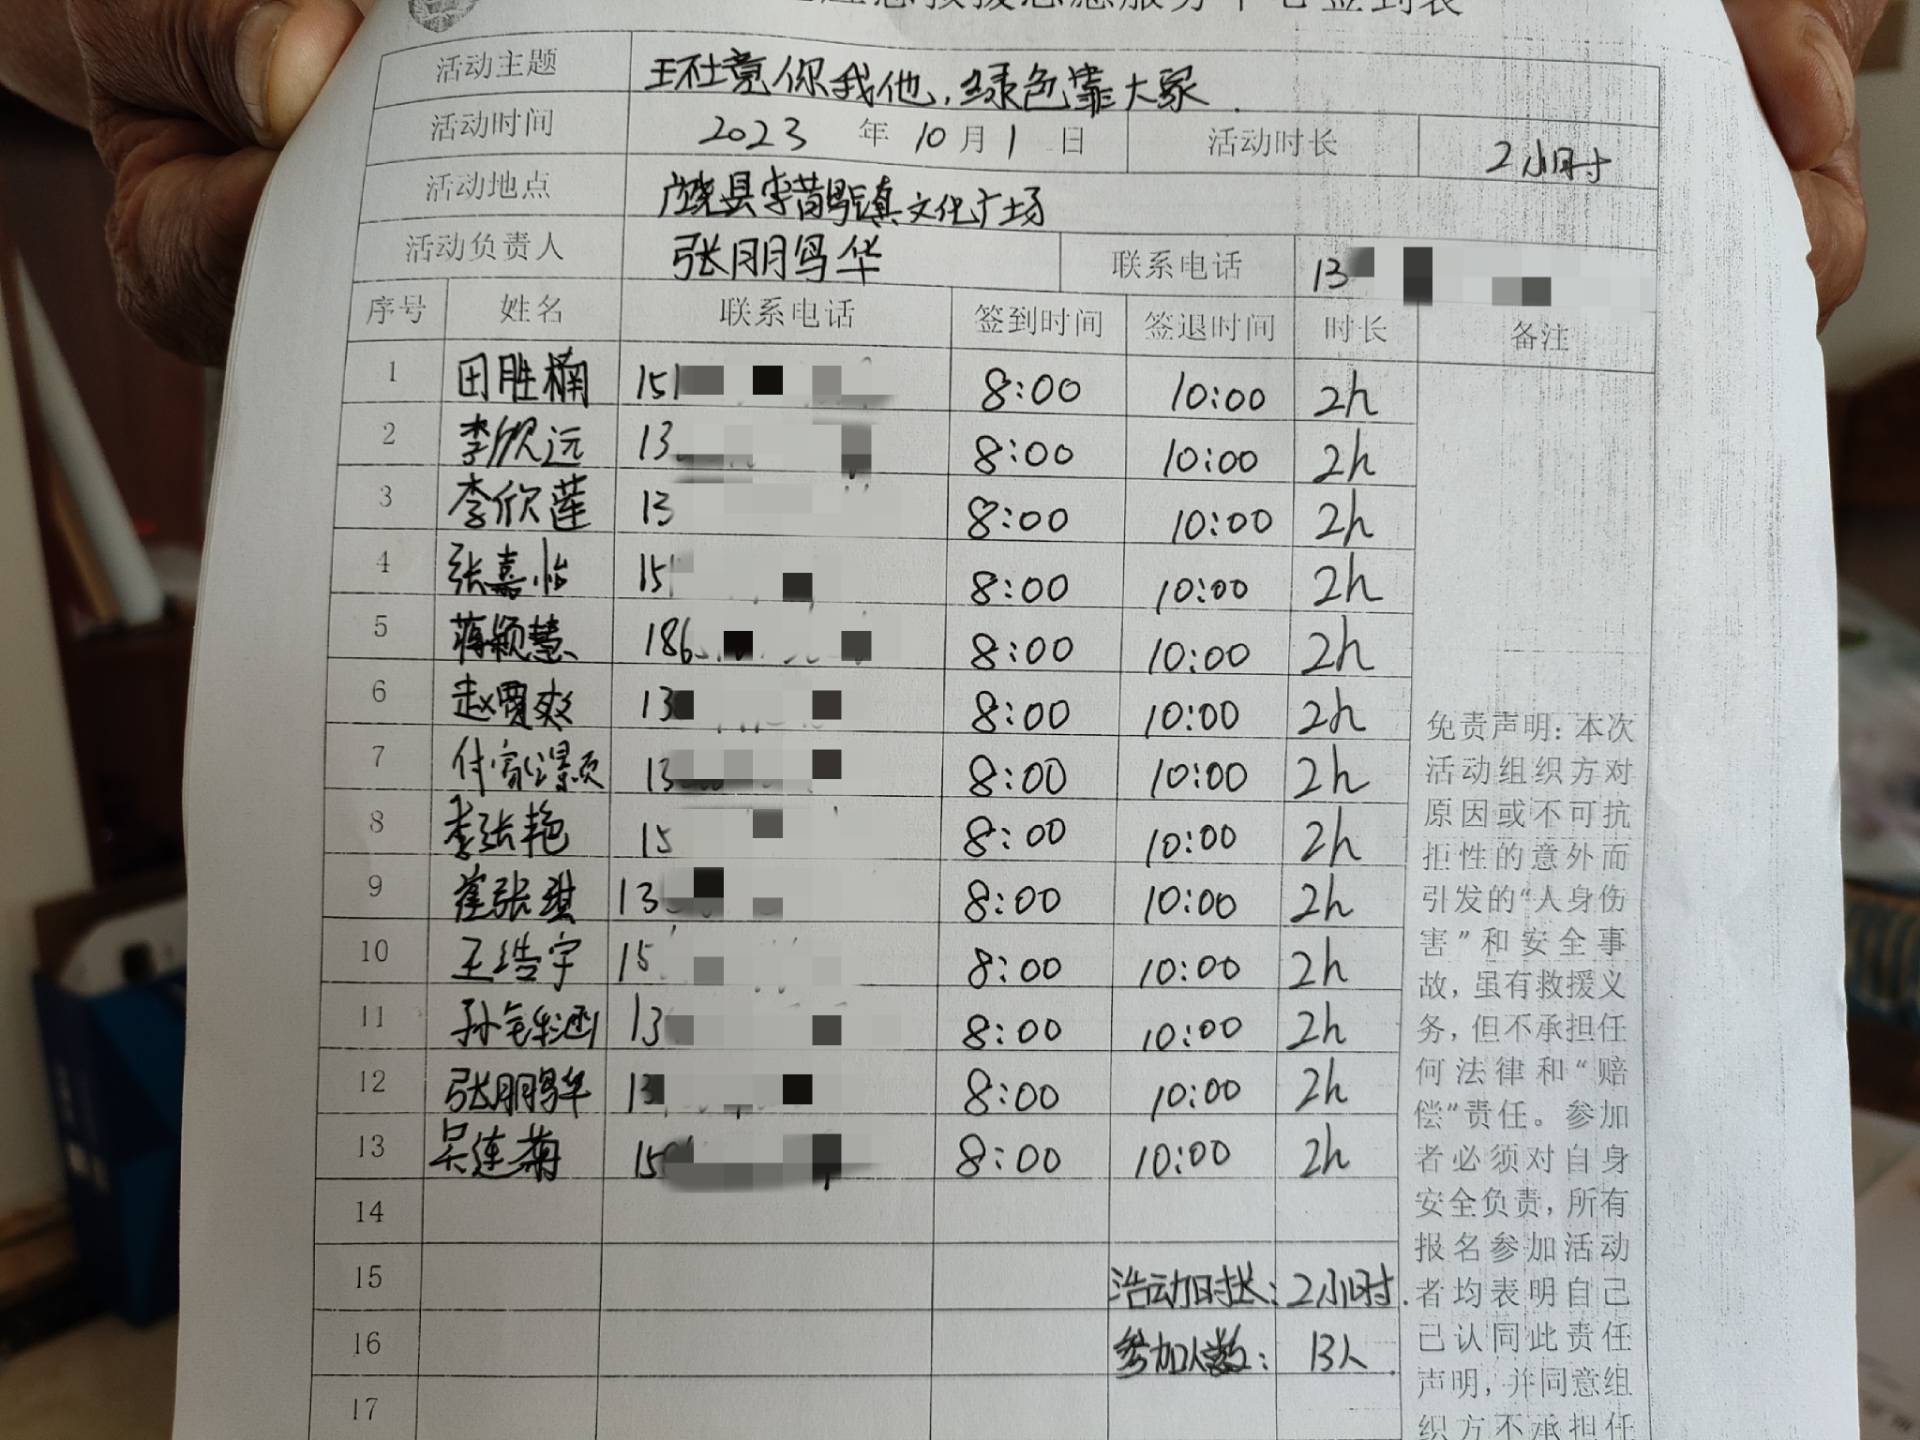 应急救援志愿服务中心签到表
活动主题 环境你我他，绿色靠大家.
活动时间 2023 年 10 月 1 日 活动时长 2小时
活动地点 广饶县李鹊镇文化广场
活动负责人 张鹏华 联系电话 13
序号 姓名 联系电话 签到时间 签退时间 时长 备注
1 田胜楠 151 8:00 10:00 2h
2 李欣远 13 8:00 10:00 2h
3 李欣莲 13 8:00 10:00 2h
4 张嘉怡 15 8:00 10:00 2h
5 蒋颖慧 186 8:00 10:00 2h
6 赵贾爽 13 8:00 10:00 2h
7 付家灏 13 8:00 10:00 2h
8 李张艳 15 8:00 10:00 2h
9 崔张琪 13 8:00 10:00 2h
10 王浩宇 15 8:00 10:00 2h
11 孙 涵 13 8:00 10:00 2h
12 张鹏华 13 8:00 10:00 2h
13 吴连菊 15 8:00 10:00 2h
14
15 活动时长：2小时.
16 参加人数：13人.
17
免责声明：本次
活动组织方对
原因或不可抗
拒性的意外而
引发的“人身伤
害”和安全事
故，虽有救援义
务，但不承担任
何法律和“赔
偿”责任。参加
者必须对自身
安全负责，所有
报名参加活动
者均表明自己
已认同此责任
声明，并同意组
织方不承担任